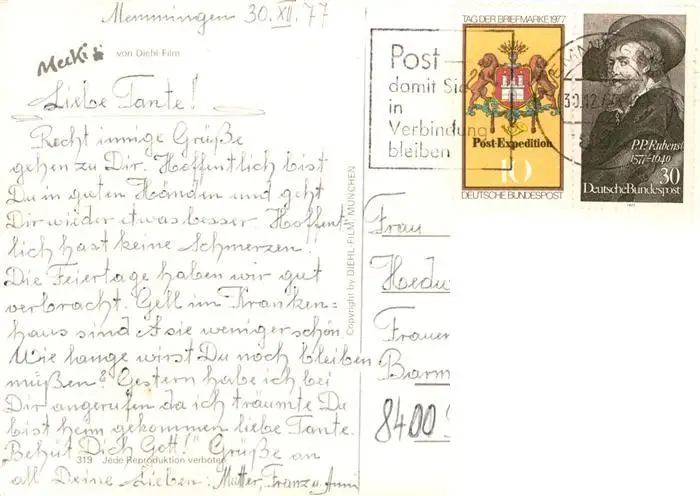 Memmingen 30.XII.77
Mecki
von Diehl-Film
Liebe Tante!
Recht innige Grüße
gehen zu Dir. Hoffentlich bist
Du in guten Händen und geht
Dir wieder etwas besser. Hoffent-
lich hast keine Schmerzen.
Die Feiertage haben wir gut
verbracht. Gell im Kranken=
haus sind sie weniger schön
Wie lange wirst Du noch bleiben
müßen? Gestern habe ich bei
Dir angerufen da ich träumte Du
bist heim gekommen liebe Tante.
Behüt Dich Gott!" Grüße an
319 Jede Reproduktion verboten
all Deine Lieben: Mutter, Franz u. Anni
Copyright by DIEHL-FILM, MÜNCHEN
Post
damit Sie
in
Verbindung
bleiben
TAG DER BRIEFMARKE 1977
Post-Expedition
10
DEUTSCHE BUNDESPOST
30.12.77
P.P. Rubens
1577-1640
30
Deutsche Bundespost
1977
Frau
Hedw
Frauen
Barm
8400